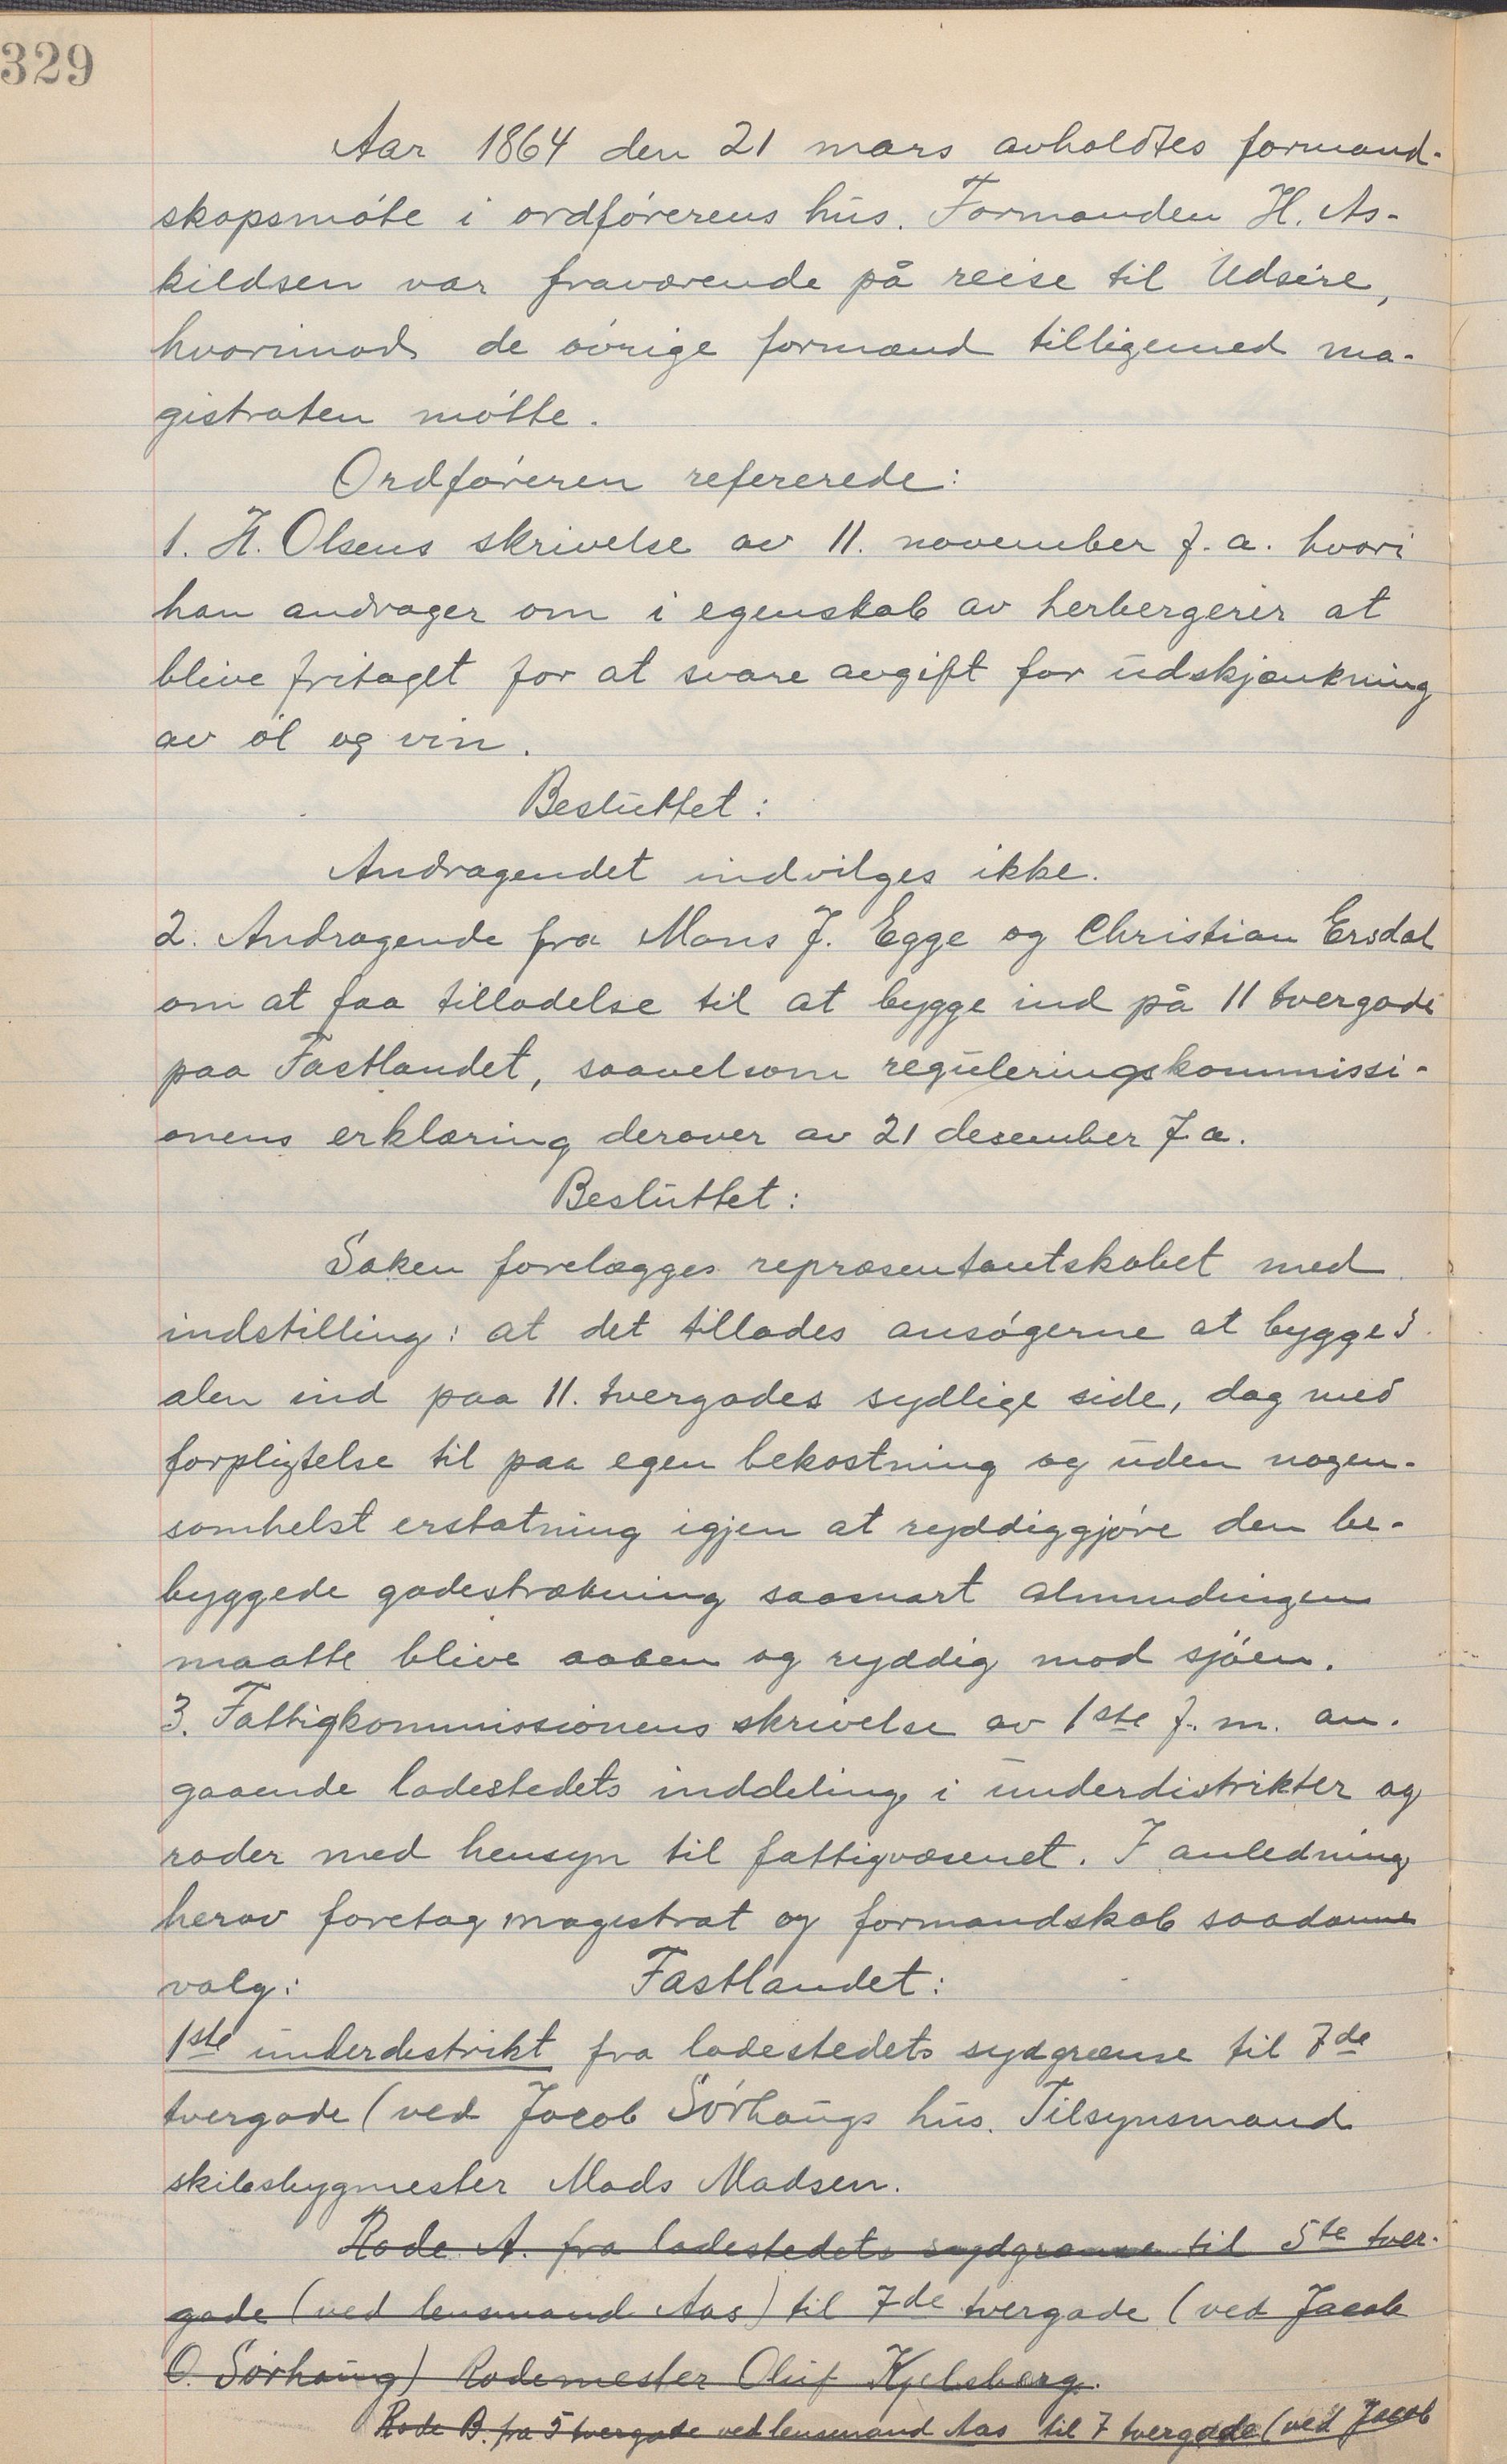 329
Aar 1864 den 21 mars avholdtes formand-
skapsmöte i ordförerens hus. Formanden H. As-
kildsen var fraværende på reise til Udsire,
hvorimod de övrige formænd tilligemed ma-
gistraten mötte.
Ordföreren refererede:
1. H. Olsens skrivelse av 11. november f. a. hvori
han andrager om i egenskab av herbergerer at
blive fritaget for at svare avgift for udskjænkning
av öl og vin.
Besluttet:
Andragendet indvilges ikke.
2. Andragende fra Mons J. Egge og Christian Ersdal
om at faa tilladelse til at bygge ind på 11 tvergade
paa Fastlandet, saavelsom reguleringskommissi-
onens erklæring derover av 21 desember f. a.
Besluttet:
Saken forelægges repræsentantskabet med
indstilling: at det tillades ansögerne at bygge 3
alen ind paa 11. tvergades sydlige side, dog med
forpligtelse til paa egen bekostning og uden nogen-
somhelst erstatning igjen at ryddiggjöre den be-
byggede gadestrækning saasnart almindingen
maatte blive aaben og ryddig mod sjöen.
3. Fattigkommissionens skrivelse av 1ste f. m. an-
gaaende ladestedets inddeling i underdistrikter og
roder med hensyn til fattigvæsenet. I anledning
herav foretog magistrat og formandskab saadanne
valg: Fastlandet:
1ste underdestrikt fra ladestedets sydgrænse til 7de
tvergade (ved Jacob Sörhaugs hus. Tilsynsmand
skibsbygmester Mads Madsen.
Rode A. fra ladestedets sydgrænse til 5te tver-
gade (ved lensmand Aas) til 7de tvergade (ved Jacob
O. Sörhaug) Rodemester Oluf Kjelsberg.
Rode B. fra 5 tvergade ved lensmand Aas til 7 tvergade (ved Jacob